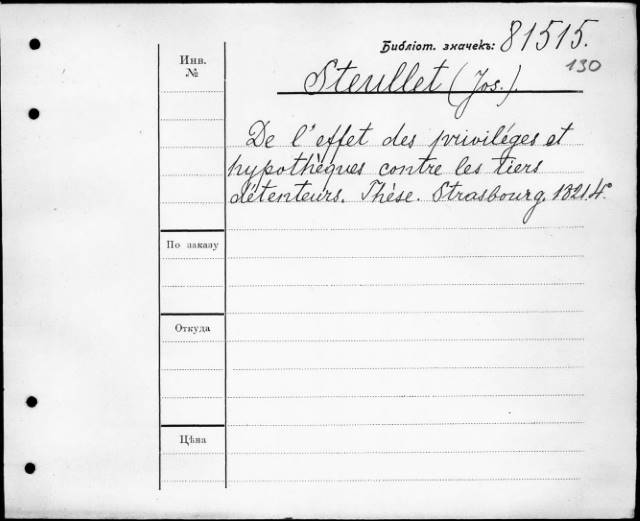 Библіот. значекъ: 81515.
130
Инв.
№
Steullet (Jos.).
De l'effet des priviléges et
hypothèques contre les tiers
détenteurs. Thèse. Strasbourg. 1821. 4°
По заказу
Откуда
Цѣна